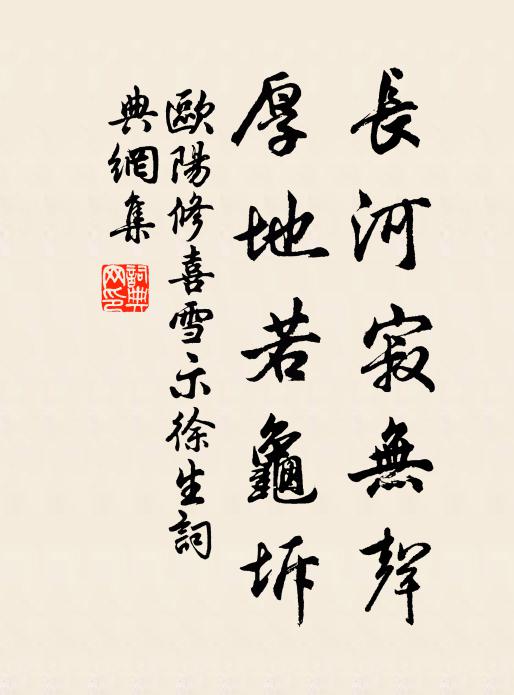 長河寂無聲
厚地若龜坼
歐陽修喜雪示徐生詞
典網集
詞典
网印